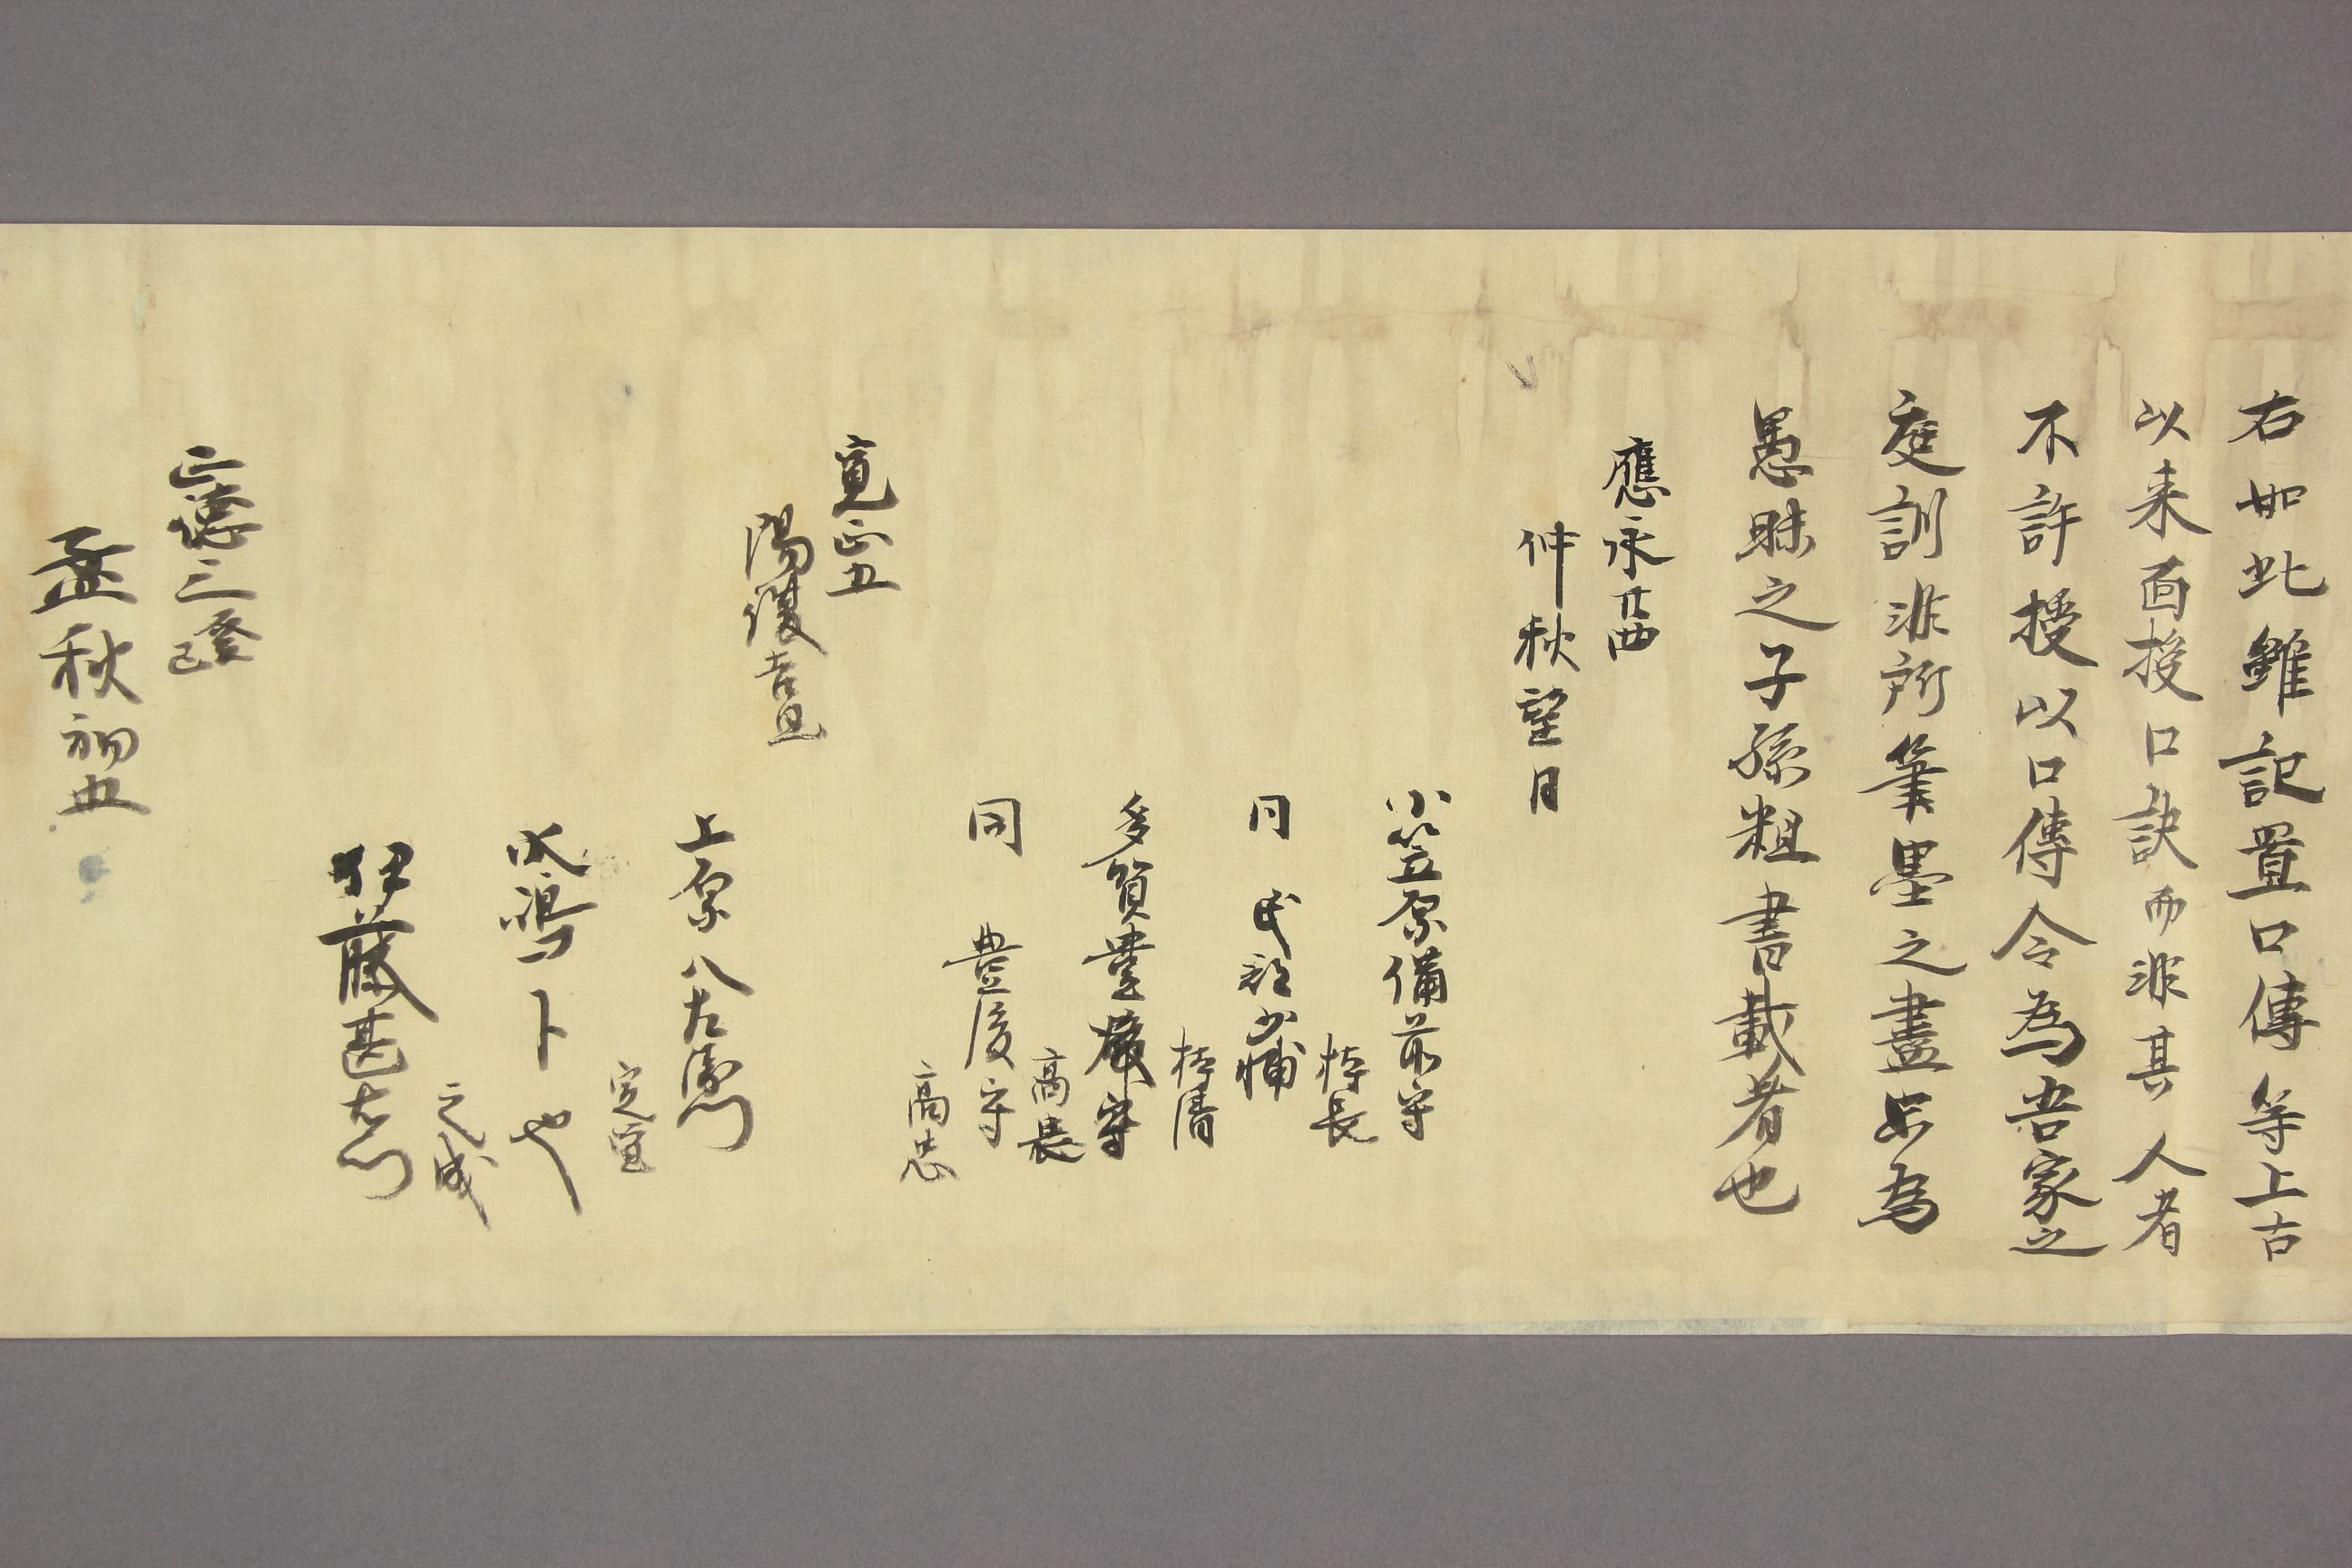 右如此雖記置口傳等上古
以来面授口訣而非其人者
不許授以口傳令為吾家之
庭訓非所筆墨之盡只為
愚昧之子孫粗書載者也
應永廿四
仲秋望日
小笠原備前守
持長
同 民部少輔
持清
多賀豊後守
高長
同 豊後守
高忠
寛正五
陽復吉旦
上原八左衛門
定宜
之成
伊藤甚右衛門
正德三癸巳
孟秋初五